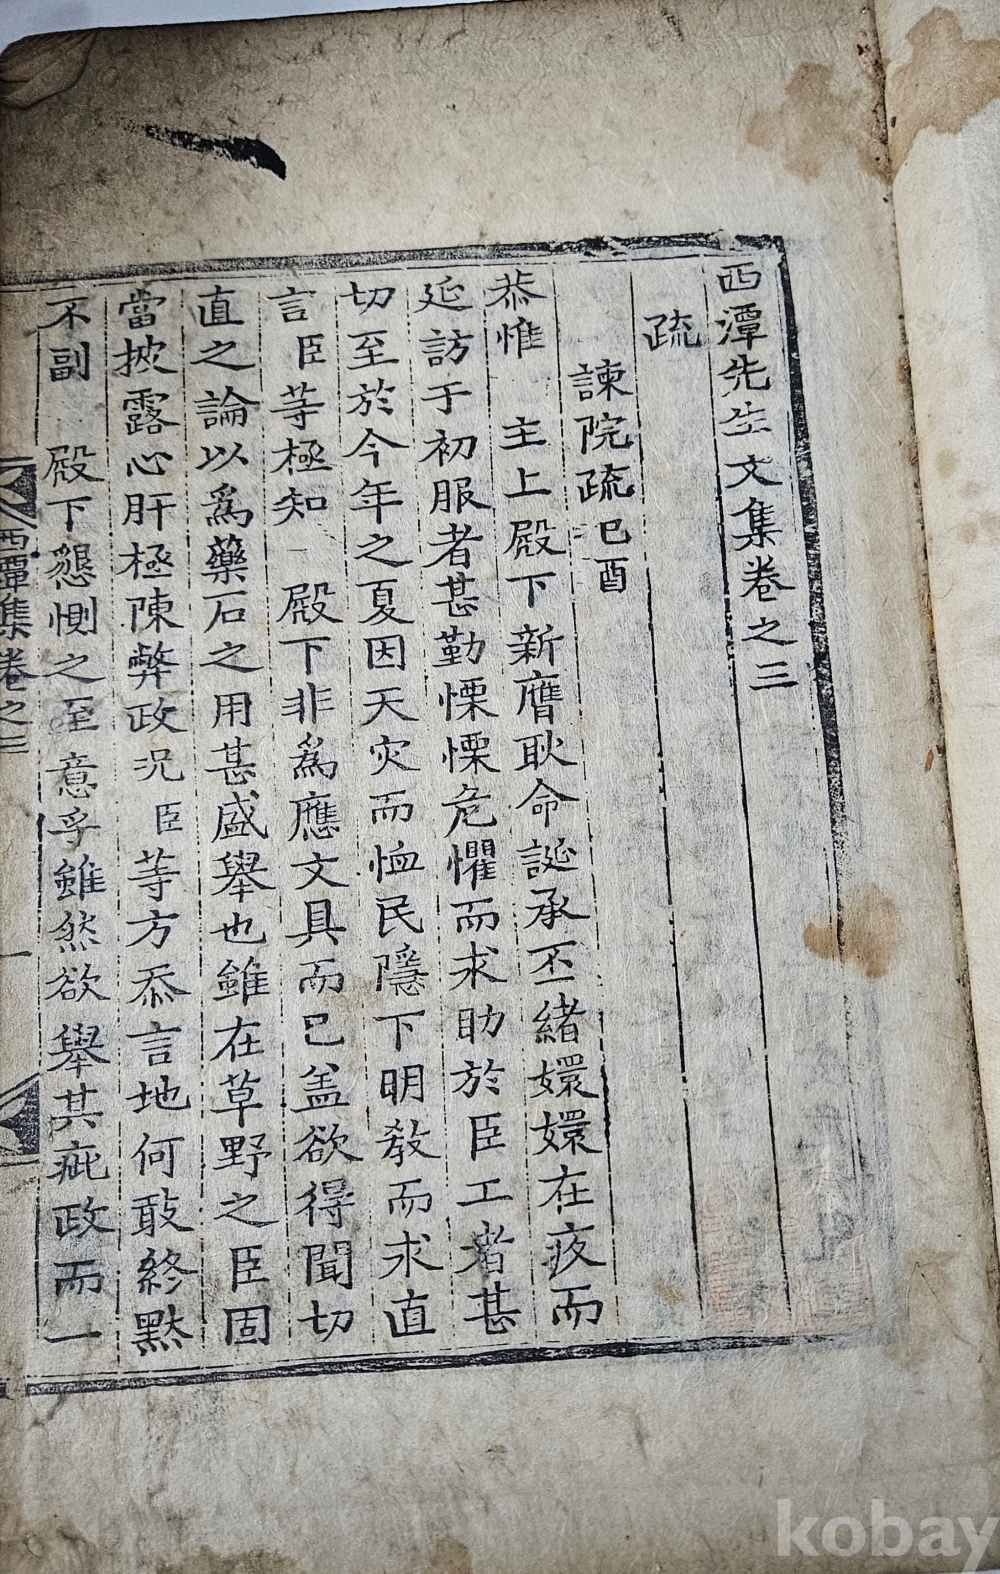 西潭先生文集卷之三
疏
諫院疏 己酉
恭惟 主上殿下新膺耿命誕承丕緒嬛嬛在疚而
延訪于初服者甚勤慄慄危懼而求助於臣工者甚
切至於今年之夏因天灾而恤民隱下明教而求直
言臣等極知 殿下非爲應文具而已盖欲得聞切
直之論以爲藥石之用甚盛舉也雖在草野之臣固
當披露心肝極陳弊政况臣等方忝言地何敢終默
不副 殿下懇惻之至意乎雖然欲舉其疵政而一
西潭集卷之三 一
kobay